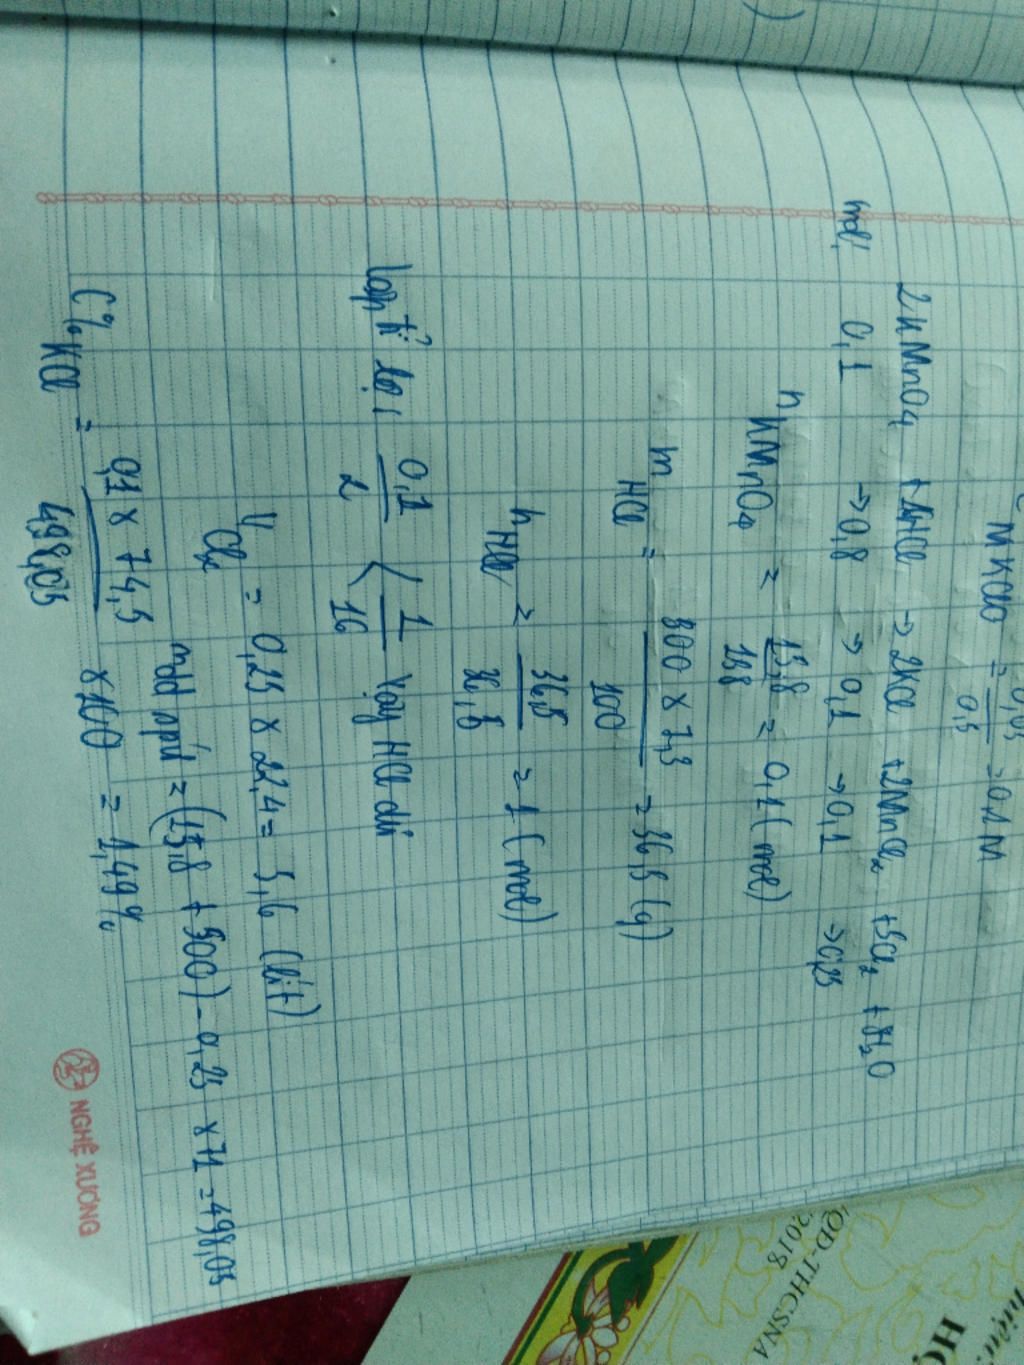 MKClO = 0,05 / 0,5 = 0,1M
2KMnO4 + 16HCl → 2KCl + 2MnCl2 + 5Cl2 + 8H2O
mol: 0,1 → 0,8 → 0,1 → 0,1 → 0,25
nKMnO4 = 15,8 / 158 = 0,1 (mol)
mHCl = 500 x 7,3 / 100 = 36,5 (g)
nHCl = 36,5 / 36,5 = 1 (mol)
lập tỉ lệ: 0,1 / 2 < 1 / 16 vậy HCl dư
VCl2 = 0,25 x 22,4 = 5,6 (lít)
mdd pứ = (15,8 + 500) - 0,25 x 71 = 498,05
C% KCl = 0,1 x 74,5 / 498,05 x 100 = 1,49%
NGHỆ XƯƠNG
QĐ-THCSNA
2018
HỌ